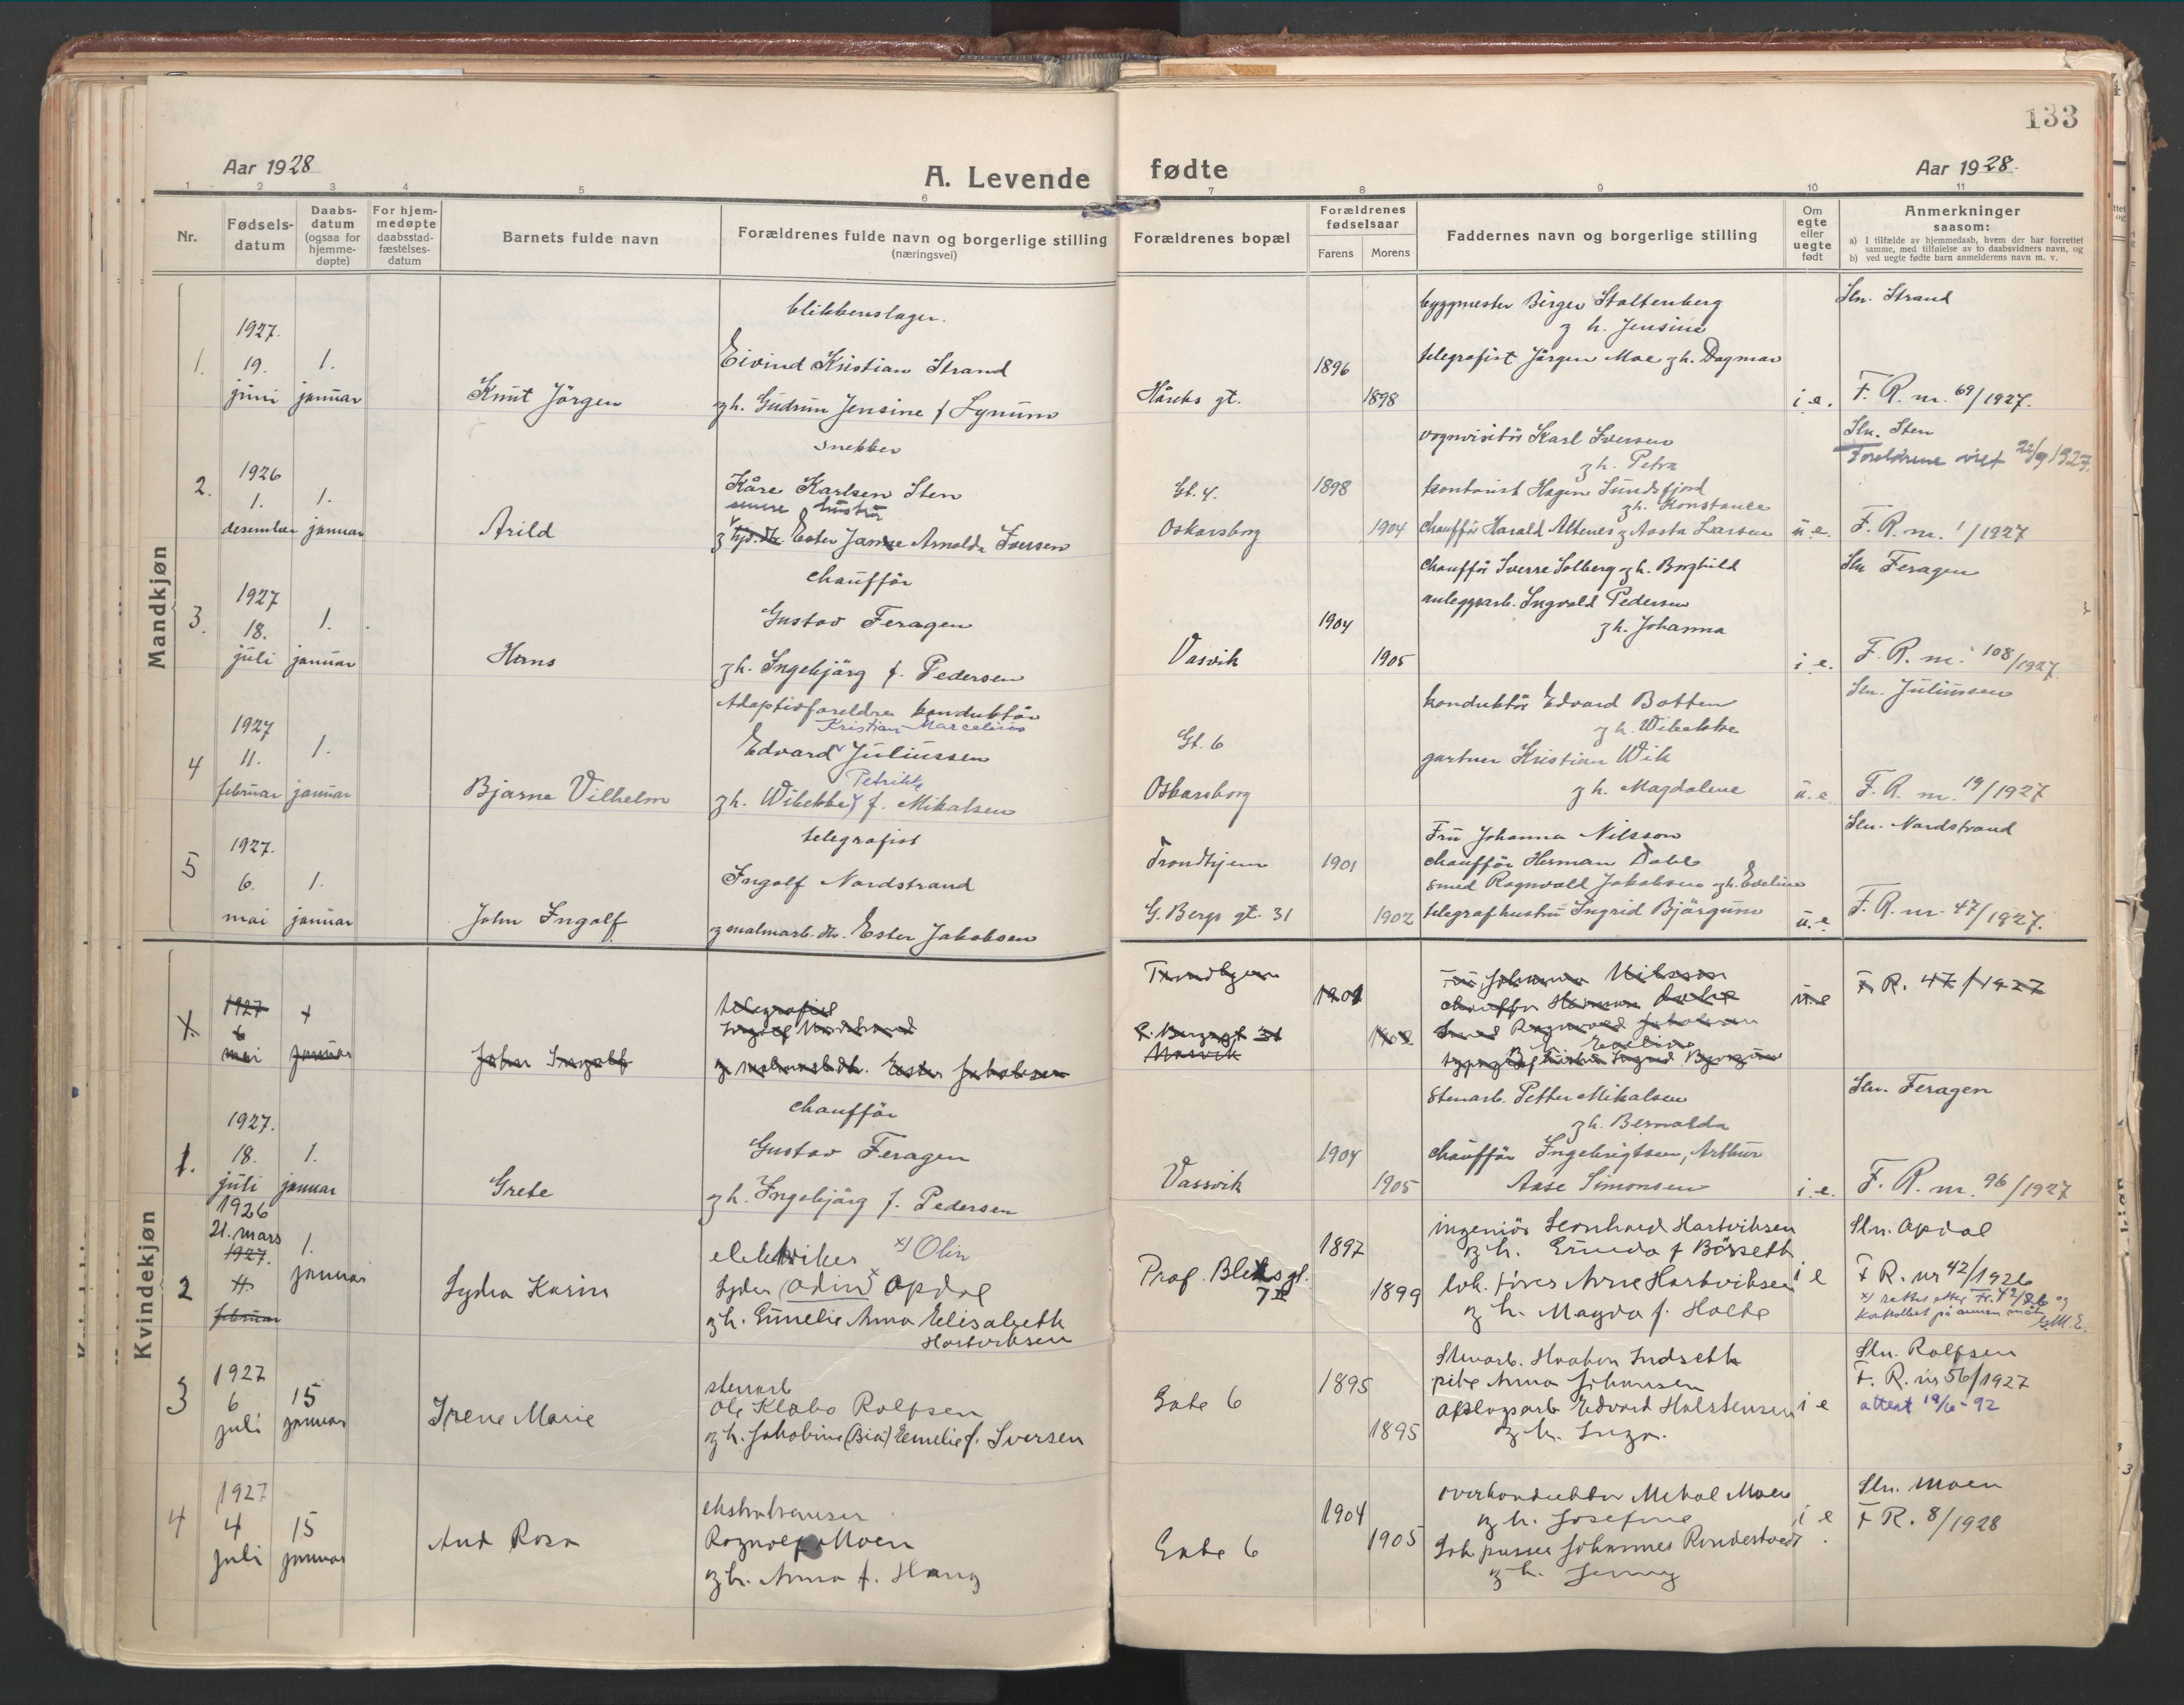 133
Aar 1928
A. Levende fødte
Aar 1928.
1 2 3 4 5 6 7 8 9 10 11
Nr.
Fødsels-
datum
Daabs-
datum
(ogsaa for
hjemme-
døpte)
For hjem-
medøpte
daabsstad-
fæstelses-
datum
Barnets fulde navn
Forældrenes fulde navn og borgerlige stilling
(næringsvei)
Forældrenes bopæl
Forældrenes
fødselsaar
Farens Morens
Faddernes navn og borgerlige stilling
Om
egte
eller
uegte
født
Anmerkninger
saasom:
a) I tilfælde av hjemmedaab, hvem der har forrettet
samme, med tilføielse av to daabsvidners navn, og
b) ved uegte fødte barn anmelderens navn m. v.
Mandkjøn
1.
1927.
19.
juni
1.
januar
Knut Jörgen
blikkenslager.
Eivind Kristian Strand
g h. Gudrun Jensine f Lynum
Håreks gt.
1896
1898
byggmester Birger Stoltenberg
g h. Jensine
telegrafist Jörgen Moe g h. Dagmar
i. e.
Sln. Strand
F. R. nr. 69/1927.
2.
1926
1.
desember
1.
januar
Arild
snekker
Kåre Karlsen Sten
senere hustru
Ester Janne Arnolda Iversen
Gt. 4.
Oskarsborg
1898
1904
vognvisitör Karl Iversen
g h. Petra
kontorist Hagen Sundsfjord
g h. Konstance
chaufför Harald Altenes g Aasta Larsen
u. e.
Sln. Sten
Foreldrene viet 22/9 1927.
F. R. nr. 1/1927
3.
1927
18.
juli
1.
januar
Hans
chaufför
Gustav Feragen
g h. Ingebjörg f. Pedersen
Vasvik
1904
1905
chaufför Sverre Solberg g h. Borghild
anleggsarb. Ingvald Pedersen
g h. Johanna
i. e.
Sln Feragen
F. R. nr. 108/1927.
4
1927
11.
februar
1.
januar
Bjarne Vilhelm
Adoptivforeldre konduktör
Kristian Marcelius
Edvard Juliussen
Petrikke
g h. Wibekke f. Mikalsen
Gt. 6
Oskarsborg
konduktör Edvard Botten
g h. Wibekke
gartner Kristian Wik
g h. Magdalene
u. e.
Sln. Juliussen
F. R. nr. 19/1927
5
1927.
6.
mai
1.
januar
John Ingolf
telegrafist
Ingolf Nordstrand
g malmarb. dtr. Ester Jakobsen
Trondhjem
G. Bergs gt. 31
1901
1902
Fru Johanna Nilsson
chaufför Herman Dahl
smed Ragnvald Jakobsen g h. Eveline
telegrafhustru Ingrid Bjørgum
u. e.
Sln. Nordstrand
F. R. nr. 47/1927.
Kvindekjøn
1927
6
mai
januar
John Ingolf
telegrafist
Ingolf Nordstrand
g malmarb dtr. Ester Jakobsen
Trondhjem
Vasvik
1901
1902
Fru Johanna Nilsson
chauffør Herman Dahl
Smed Ragnvald Jakobsen
Eveline
u. e
F. R. 47/1927
1.
1927.
18.
juli
1.
januar
Grete
chaufför
Gustav Feragen
g h. Ingebjörg f. Pedersen
Vassvik
1904
1905
Stenarb. Petter Mikalsen
g h. Bernalda
chaufför Ingebrigtsen, Arthur
Aase Simonsen
i. e.
Sln. Feragen
F. R. nr. 96/1927
2
1926
21. mars
1927.
11.
februar
1.
januar
Lydia Karin
elektriker x) Olin
Lyder Odin x Opdal
g h. Emelie Anna Elisabeth
Hartviksen
Prof. Bleks gt.
7 II
1897
1899
ingeniör Leonhard Hartviksen
g h. Erneda f Börseth
lok. fører Arne Hartviksen
g h. Magda f. Holte
i e
Sln. Opdal
F R. nr 42/1926
x) rettet etter Fr. 42/26 og
kontrollert på annen måte
G.M.E.
3
1927
6
juli
15
januar
Irene Marie
stenarb
Ole Klabo Rolfsen
g h. Jakobine (Bia) Emelie f. Iversen
Gate 6
1895
1895
Stenarb. Haakon Indseth
pike Anna Johansen
oplagsarb Edvard Halstensen
g h. Inga.
i e
Sln. Rolfsen
F. R. nr 56/1927
attest 19/6-92
4
1927
4
juli
15
januar
Aud Rosa
ekstrabremser
Ragnolf Moen
g h. Anna f. Haug
Gate 6
1904
1905
overkonduktör Mekal Moen
g h. Josefine
Lok pusser Johannes Rindestvedt
g h. Jenny
i e
Sln. Moen
F R. 8/1928